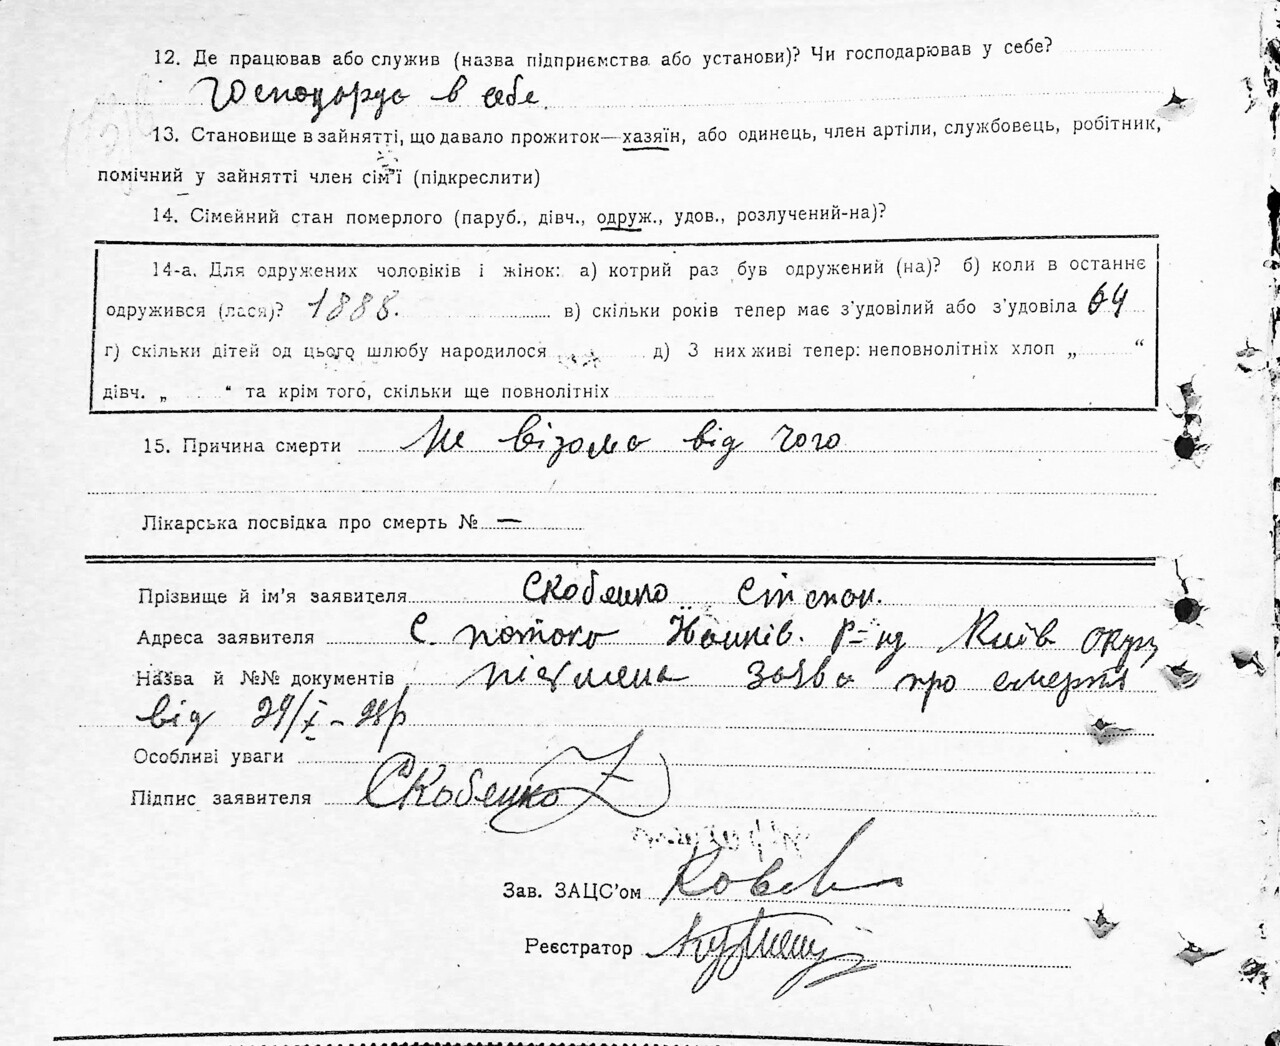 12. Де працював або служив (назва підприємства або установи)? Чи господарював у себе?
Господарув в себе
13. Становище в зайнятті, що давало прожиток—хазяїн, або одинець, член артіли, службовець, робітник,
помічний у зайнятті член сім'ї (підкреслити)
14. Сімейний стан померлого (паруб., дівч., одруж., удов., розлучений-на)?
14-а. Для одружених чоловіків і жінок: а) котрий раз був одружений (на)? б) коли в останнє
одружився (лася)? 1888. в) скільки років тепер має з'удовілий або з'удовіла 64
г) скільки дітей од цього шлюбу народилося д) З них живі тепер: неповнолітніх хлоп „ “
дівч. „ “ та крім того, скільки ще повнолітніх
15. Причина смерти Не візомо від чого
Лікарська посвідка про смерть № —
Прізвище й ім'я заявителя Скобенко Степан.
Адреса заявителя С Потоки р-ну Київ окр
Назва й №№ документів письмена заява про смерть
від 29/X-28р
Особливі уваги
Підпис заявителя Скобенко
Зав. ЗАЦС'ом
Реєстратор